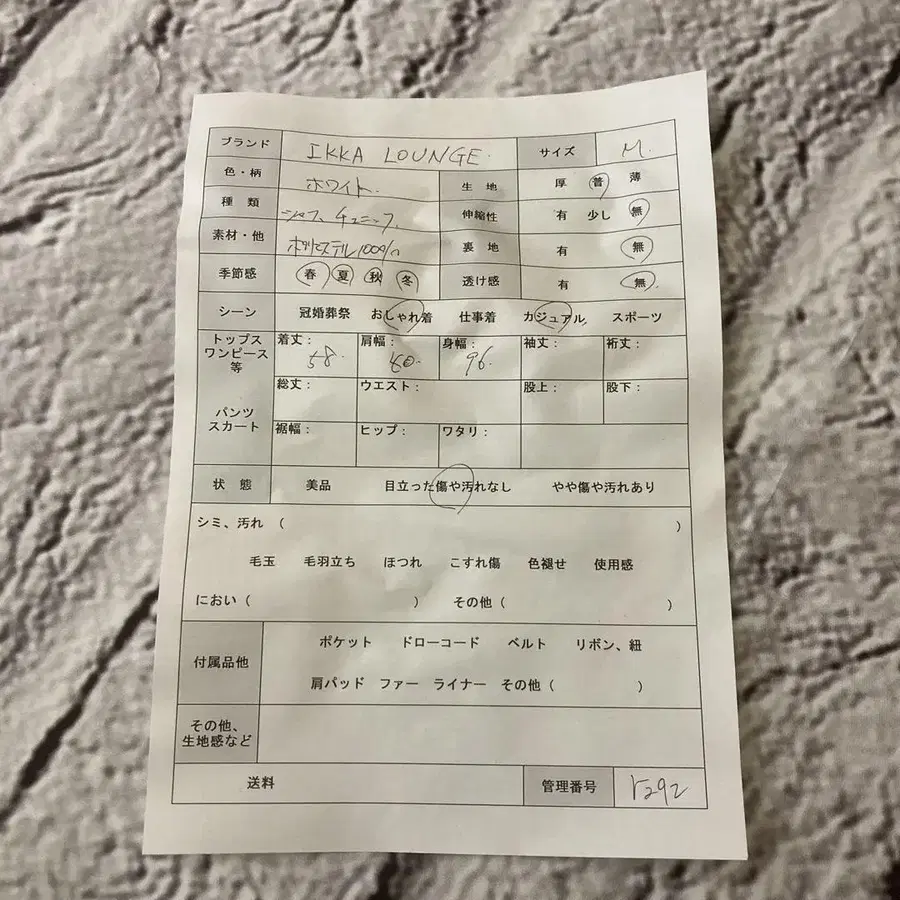 ブランド IKKA LOUNGE. サイズ M.
色・柄 ホワイト. 生地 厚 普 薄
種類 チュニック. 伸縮性 有 少し 無
素材・他 ポリエステル100% 裏地 有 無
季節感 春 夏 秋 冬 透け感 有 無
シーン 冠婚葬祭 おしゃれ着 仕事着 カジュアル, スポーツ
トップス ワンピース 等 着丈: 58. 肩幅: 40. 身幅: 96. 袖丈: 裄丈:
パンツ スカート 総丈: ウエスト: 股上: 股下:
裾幅: ヒップ: ワタリ:
状態 美品 目立った傷や汚れなし やや傷や汚れあり
シミ、汚れ ( )
毛玉 毛羽立ち ほつれ こすれ傷 色褪せ 使用感
におい ( ) その他 ( )
付属品他 ポケット ドローコード ベルト リボン、紐
肩パッド ファー ライナー その他 ( )
その他、
生地感など
送料 管理番号